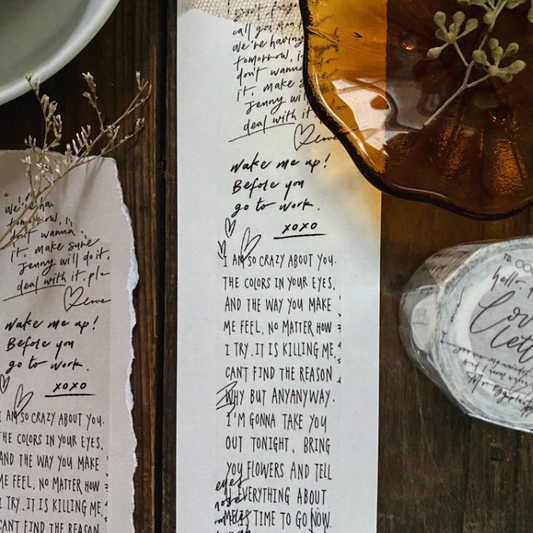 Don't forge
call gra
We're having
tomorrow, i
don't wanna
it, make s
Jenny wil
deal with it
Wake me up!
Before you
go to work.
xoxo
I AM SO CRAZY ABOUT YOU.
THE COLORS IN YOUR EYES.
AND THE WAY YOU MAKE
ME FEEL. NO MATTER HOW
I TRY. IT IS KILLING ME,
CANT FIND THE REASON
WHY BUT ANYANYWAY.
I'M GONNA TAKE YOU
OUT TONIGHT, BRING
YOU FLOWERS AND TELL
EVERYTHING ABOUT
TIME TO GO NOW.
eyes
nose
We're ha
tomorrow, i
don't wanna
it, make sure
Jenny will do it,
deal with it, pl
Wake me up!
Before you
go to work.
xoxo
I AM SO CRAZY ABOUT YOU.
THE COLORS IN YOUR EYES.
AND THE WAY YOU MAKE
ME FEEL. NO MATTER HOW
I TRY. IT IS KILLING ME,
CANT FIND THE REASON
TO DO
hello,
Love
lette